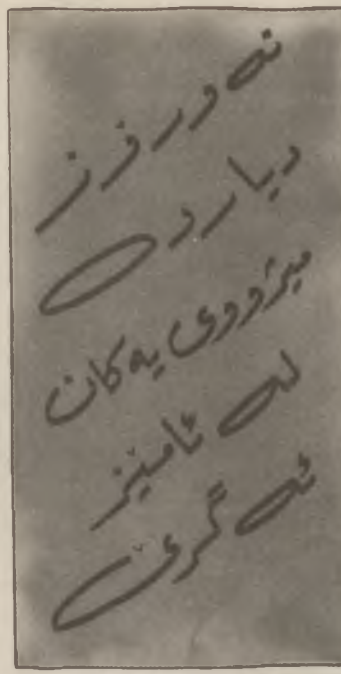 نه ورۆز
دیارده
مێژووی یه کان
له ئامێز
ئه گرێ